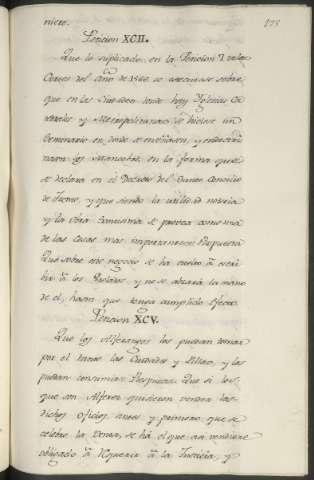 niere.
Peticion XCII.
Que lo suplicado en la Peticion I. de las
Cortes del año de 1560. se executase sobre
que en las Ciudades donde hay Yglesias Ca-
tedrales y Metropolitanas se hiciese un
Seminario en donde se enseñasen, y endotri-
nasen los Mancebos en la forma que
se declara en el Decreto del Santo Concilio
de Trento, y que siendo la utilidad notoria
y la obra Santisima se provea como una
de las cosas mas importantes: Respuesta
Que sobre este negocio se ha vuelto à escri-
bir à los Prelados, y no se alzará la mano
de el, hasta que tenga cumplido efecto.
Peticion XCV.
Que los Alferazgos los puedan tomar
por el tanto las Ciudades y Villas, y los
puedan consumir: Respuesta Que si los
que son Alferez quisieren vender los
dichos Oficios, antes y primero que se
celebre la Venta, se há el que asi vendiere
obligado à requerir à la Justicia, y